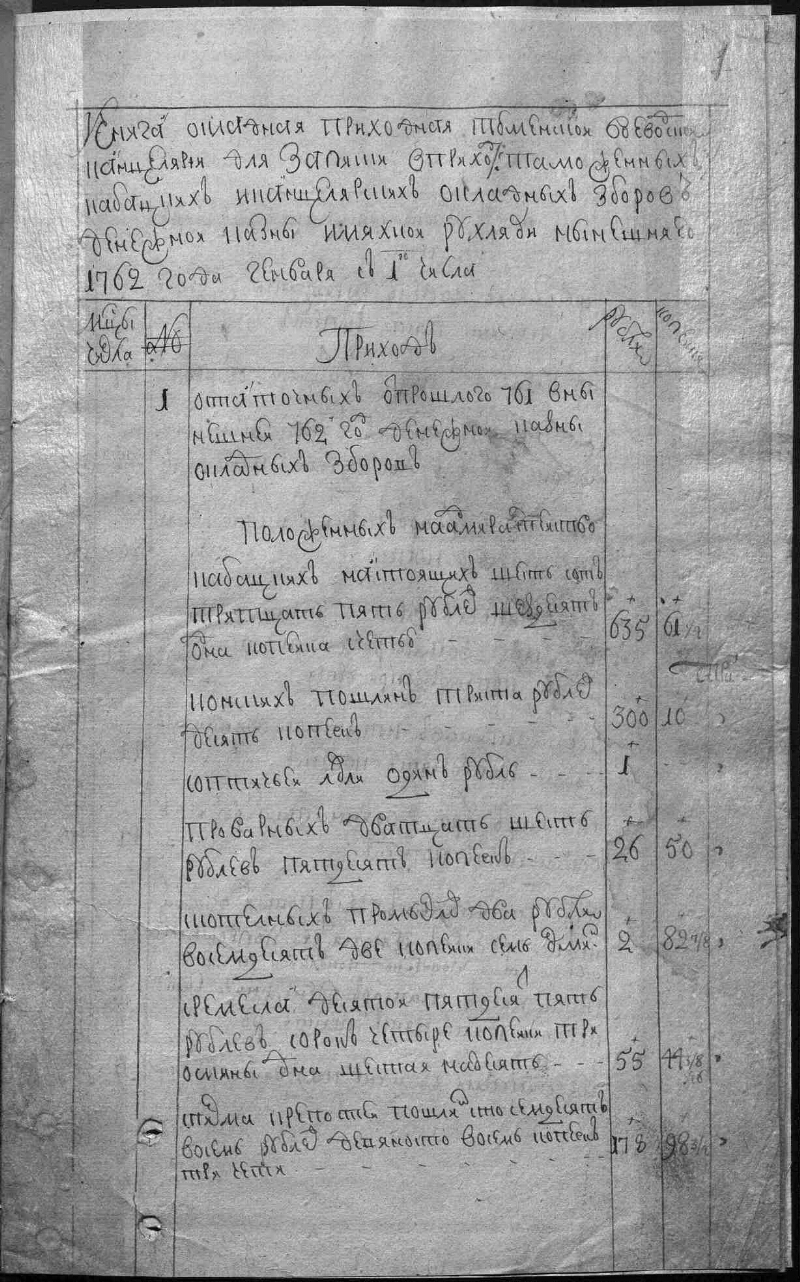 1
Книга окладная приходная тюменской воевоцкой
канцелярии для записки вприход таможенных
кабацких и канцелярских окладных зборов
денежной казны и мяхкой рухляди нынешняго
1762 года генваря с 1го числа
Мцы
числа
№
Приходъ
рубли
копейки
1
остаточных от прошлого 761 в ны
нешней 762 год денежной казны
окладных зборовъ
Положенных
кабацких настоящих шесть сотъ
тритцать пять рублев шездесят
одна копейка с четью
635
61 1/4
конских пошлин триста рублев
десять копеек
300
10
один рубль
1
Проварных дватцать шесть
рублевъ пятдесятъ копеекъ
26
50
два рубли
восемдесятъ две копейки семь
2
82 7/8
ремесла десятой пятдесят пять
рублевъ сорок четыре копейки три
осмины одна шестая надесять
55
44 3/8
1/16
пошлин сто семдесятъ
восемь рублев девяносто восемь копеекъ
три чети
178
98 3/4